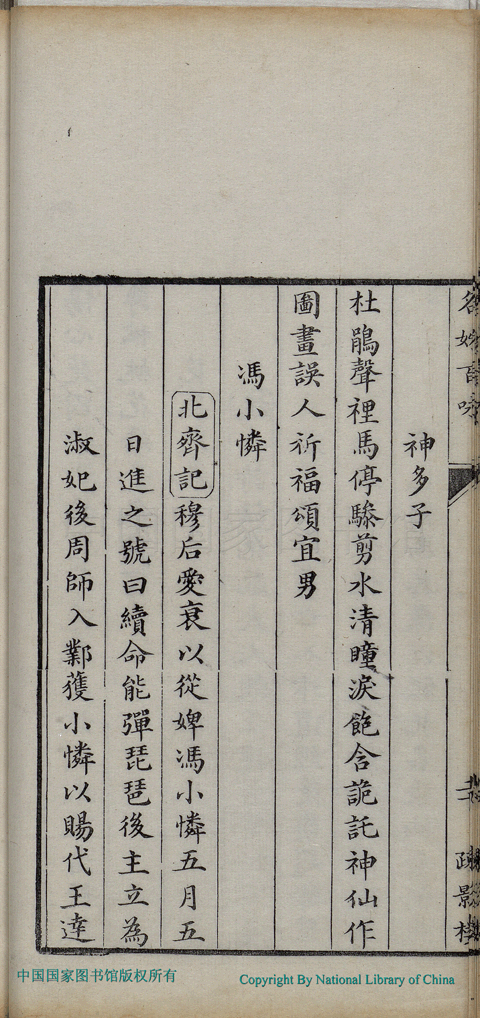 神多子
杜鵑聲裡馬停驂剪水清瞳淚飽含詭託神仙作
圖畫誤人祈福頌宜男
馮小憐
北齊記穆后愛衰以從婢馮小憐五月五
日進之號曰續命能彈琵琶後主立為
淑妃後周師入鄴獲小憐以賜代王達
中国国家图书馆版权所有
Copyright By National Library of China